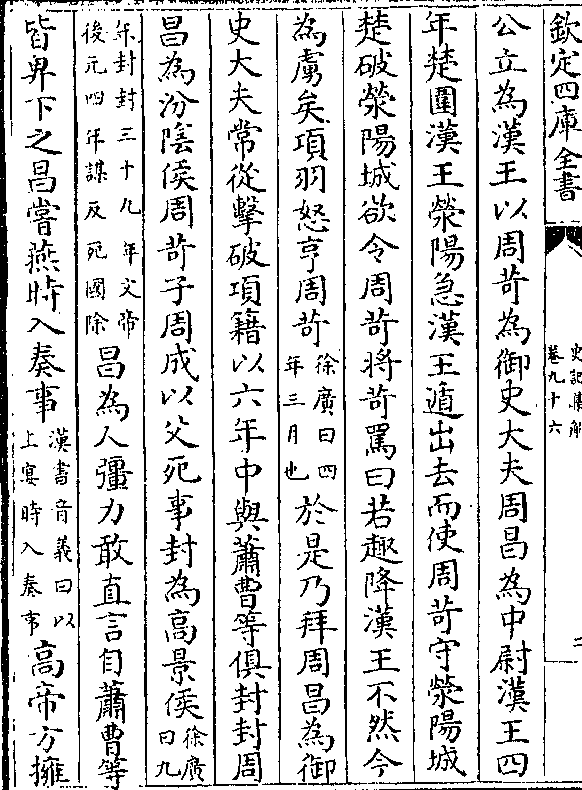 欽定四庫全書
史記集解
卷九十六
二
公立為漢王以周苛為御史大夫周昌為中尉漢王四
年楚圍漢王滎陽急漢王遁出去而使周苛守滎陽城
楚破滎陽城欲令周苛將苛罵曰若趣降漢王不然今
為虜矣項羽怒亨周苛徐廣曰四年三月也於是乃拜周昌為御
史大夫常從擊破項籍以六年中與蕭曹等俱封封周
昌為汾陰侯周苛子周成以父死事封為高景侯徐廣曰九
年封封三十九年文帝後元四年謀反死國除昌為人彊力敢直言自蕭曹等
皆卑下之昌嘗燕時入奏事漢書音義曰以上宴時入奏事高帝方擁